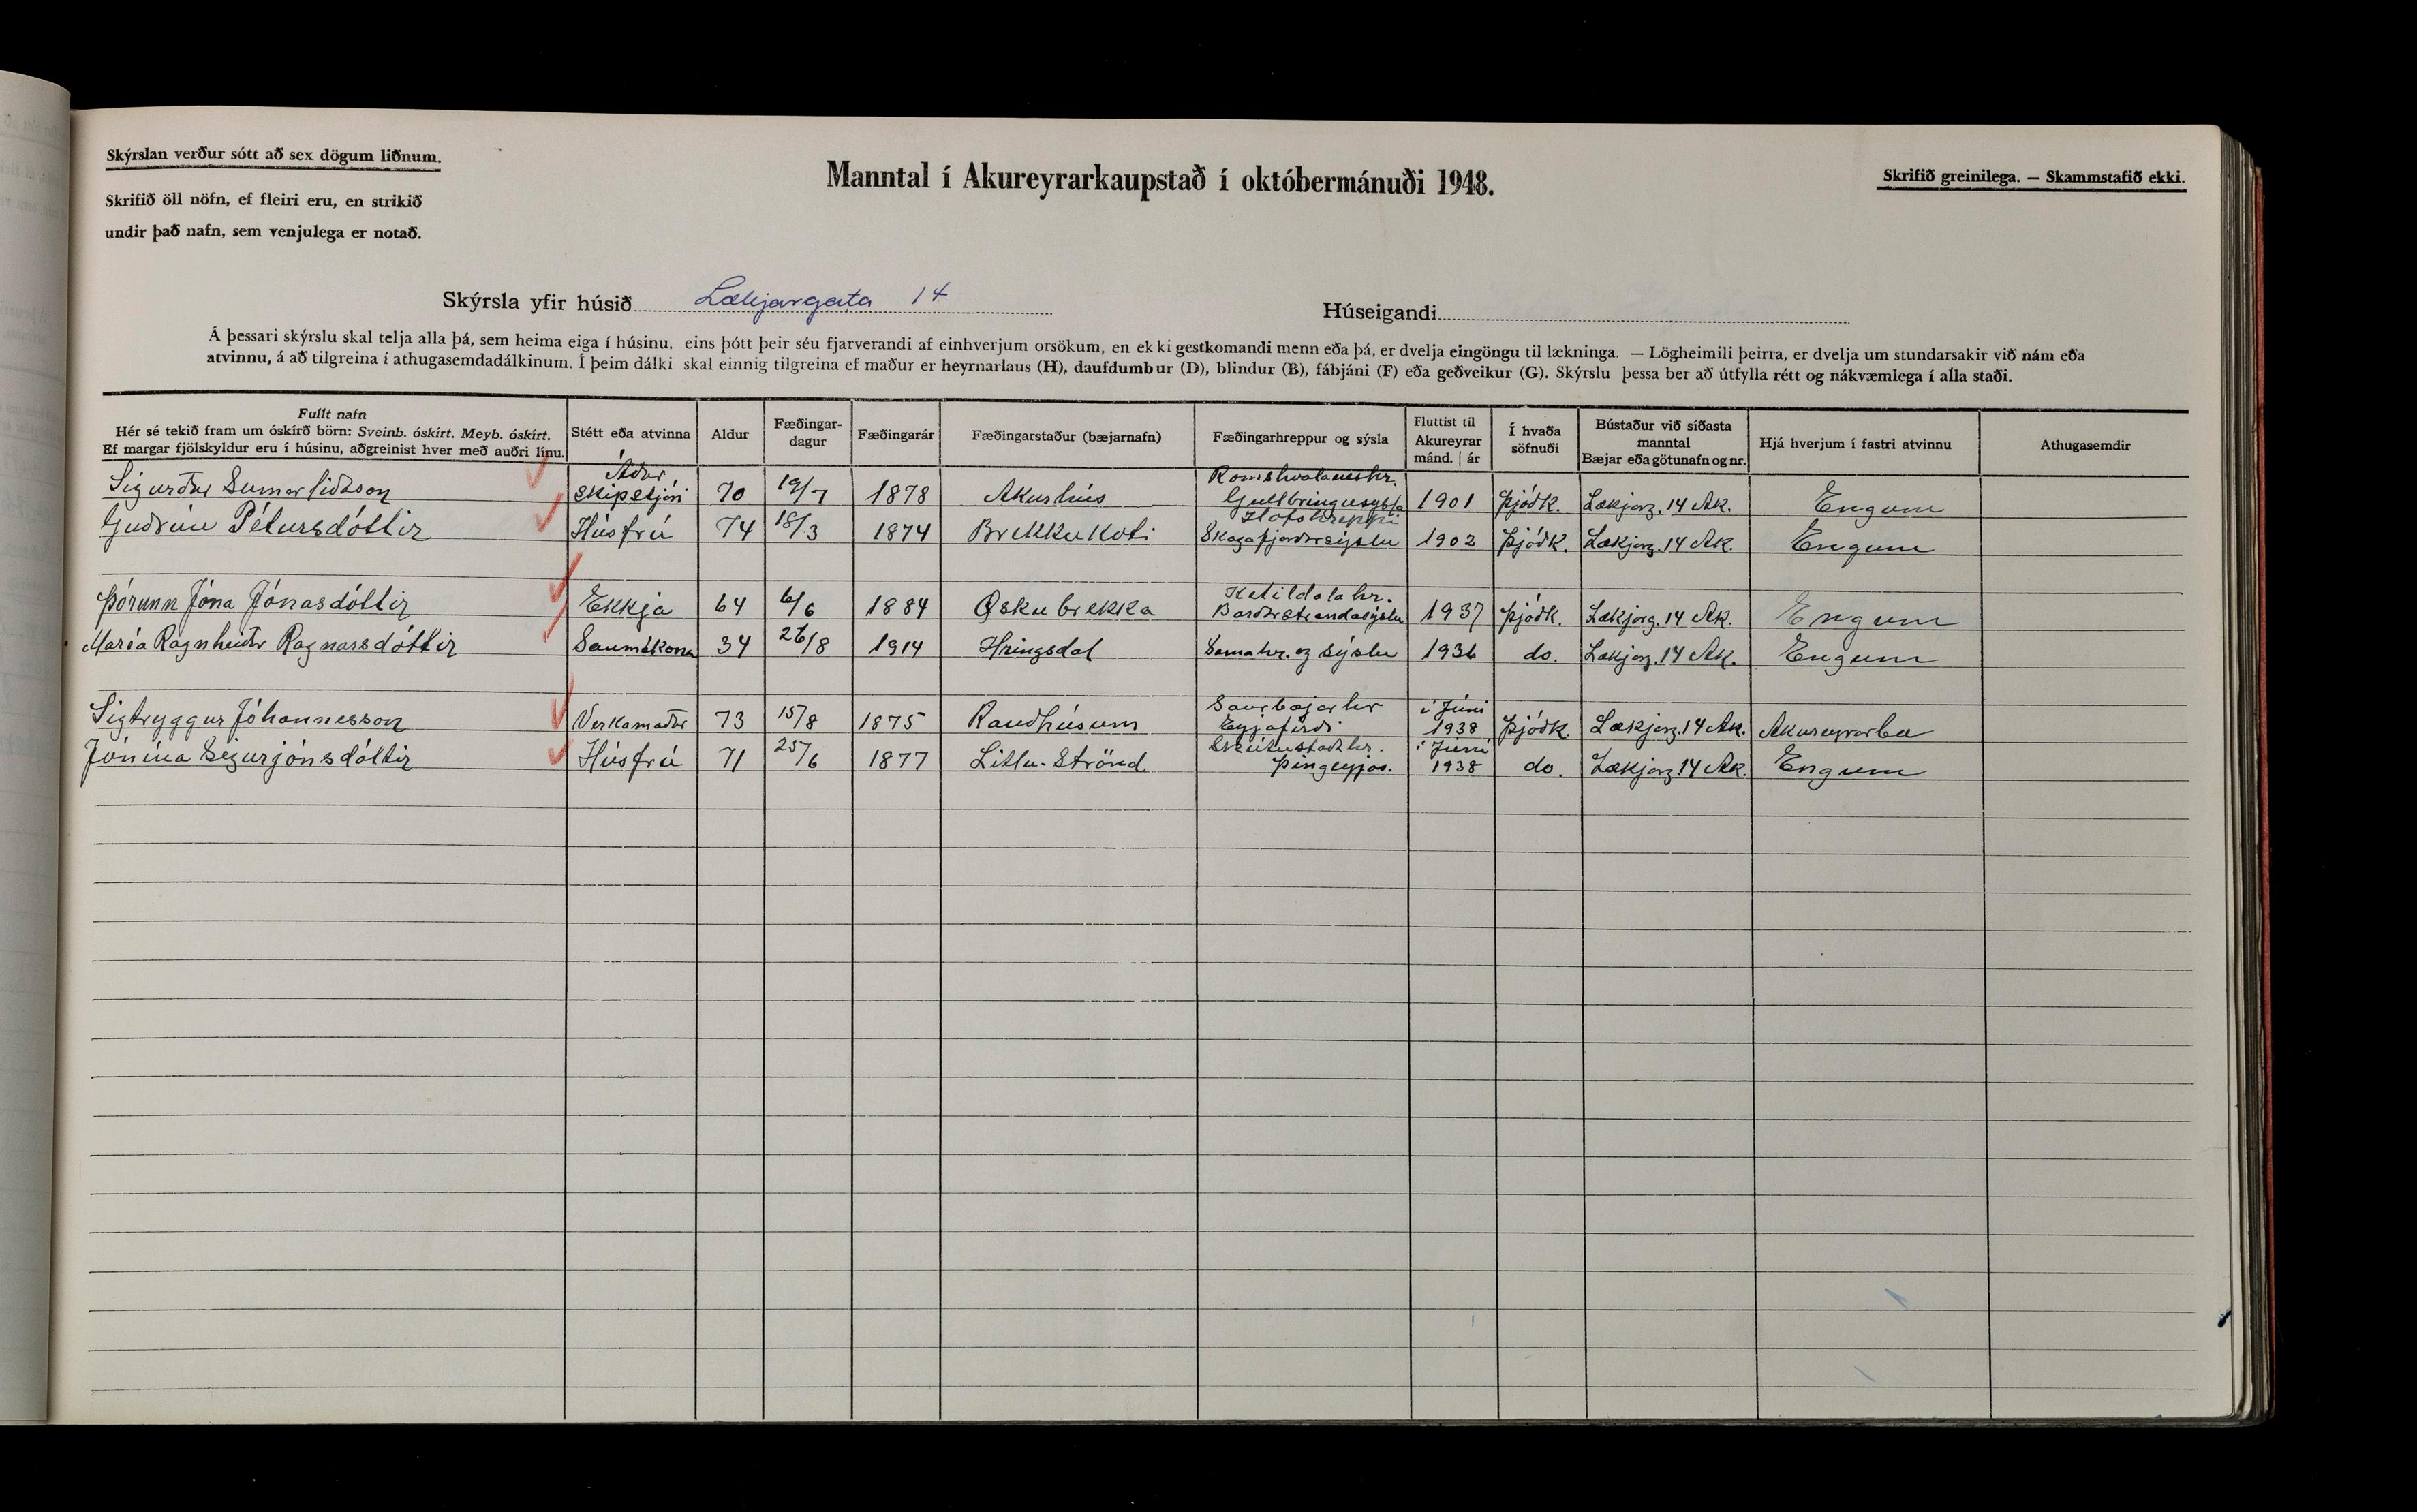 Skýrslan verður sótt að sex dögum liðnum.
Skrifið öll nöfn, ef fleiri eru, en strikið
undir það nafn, sem venjulega er notað.
Manntal í Akureyrarkaupstað í októbermánuði 1948.
Skrifið greinilega. — Skammstafið ekki.
Skýrsla yfir húsið Lækjargata 14
Húseigandi
Á þessari skýrslu skal telja alla þá, sem heima eiga í húsinu, eins þótt þeir séu fjarverandi af einhverjum orsökum, en ekki gestkomandi menn eða þá, er dvelja eingöngu til lækninga. — Lögheimili þeirra, er dvelja um stundarsakir við nám eða
atvinnu, á að tilgreina í athugasemdadálkinum. Í þeim dálki skal einnig tilgreina ef maður er heyrnarlaus (H), daufdumbur (D), blindur (B), fábjáni (F) eða geðveikur (G). Skýrslu þessa ber að útfylla rétt og nákvæmlega í alla staði.
Fullt nafn
Hér sé tekið fram um óskírð börn: Sveinb. óskírt. Meyb. óskírt.
Ef margar fjölskyldur eru í húsinu, aðgreinist hver með auðri línu.
Stétt eða atvinna
Aldur
Fæðingar-
dagur
Fæðingarár
Fæðingarstaður (bæjarnafn)
Fæðingarhreppur og sýsla
Fluttist til
Akureyrar
mánd. | ár
Í hvaða
söfnuði
Bústaður við síðasta
manntal
Bæjar eða götunafn og nr.
Hjá hverjum í fastri atvinnu
Athugasemdir
Sigurður Sumarliðason Áður skipstjóri 70 19/7 1878 Akurhús Romshvalaneshr. Gullbringusýsla 1901 Þjóðk. Lækjarg. 14 Ak. Engum
Guðrún Pétursdóttir Húsfrú 74 18/3 1874 Brekkukoti Hofshreppi Skagafjarðarsýslu 1902 Þjóðk. Lækjarg. 14 Ak. Engum
Þórunn Jóna Jónasdóttir Ekkja 64 6/6 1884 Öskubrekka Ketildalahr. Barðastrandasýslu 1937 Þjóðk. Lækjarg. 14 Ak. Engum
María Ragnheiður Ragnarsdóttir Saumakona 34 26/8 1914 Hringsdal Sama hr. og sýslu 1936 do. Lækjarg. 14 Ak. Engum
Sigtryggur Jóhannesson Verkamaður 73 15/8 1875 Raudhúsum Saurbæjarhr Eyjafirði í Júní 1938 Þjóðk. Lækjarg. 14 Ak. Akureyrarbæ
Jónína Sigurjónsdóttir Húsfrú 71 25/6 1877 Litlu-Strönd Skútustaðahr. Þingeyjas. í Júní 1938 do. Lækjarg 14 Ak. Engum